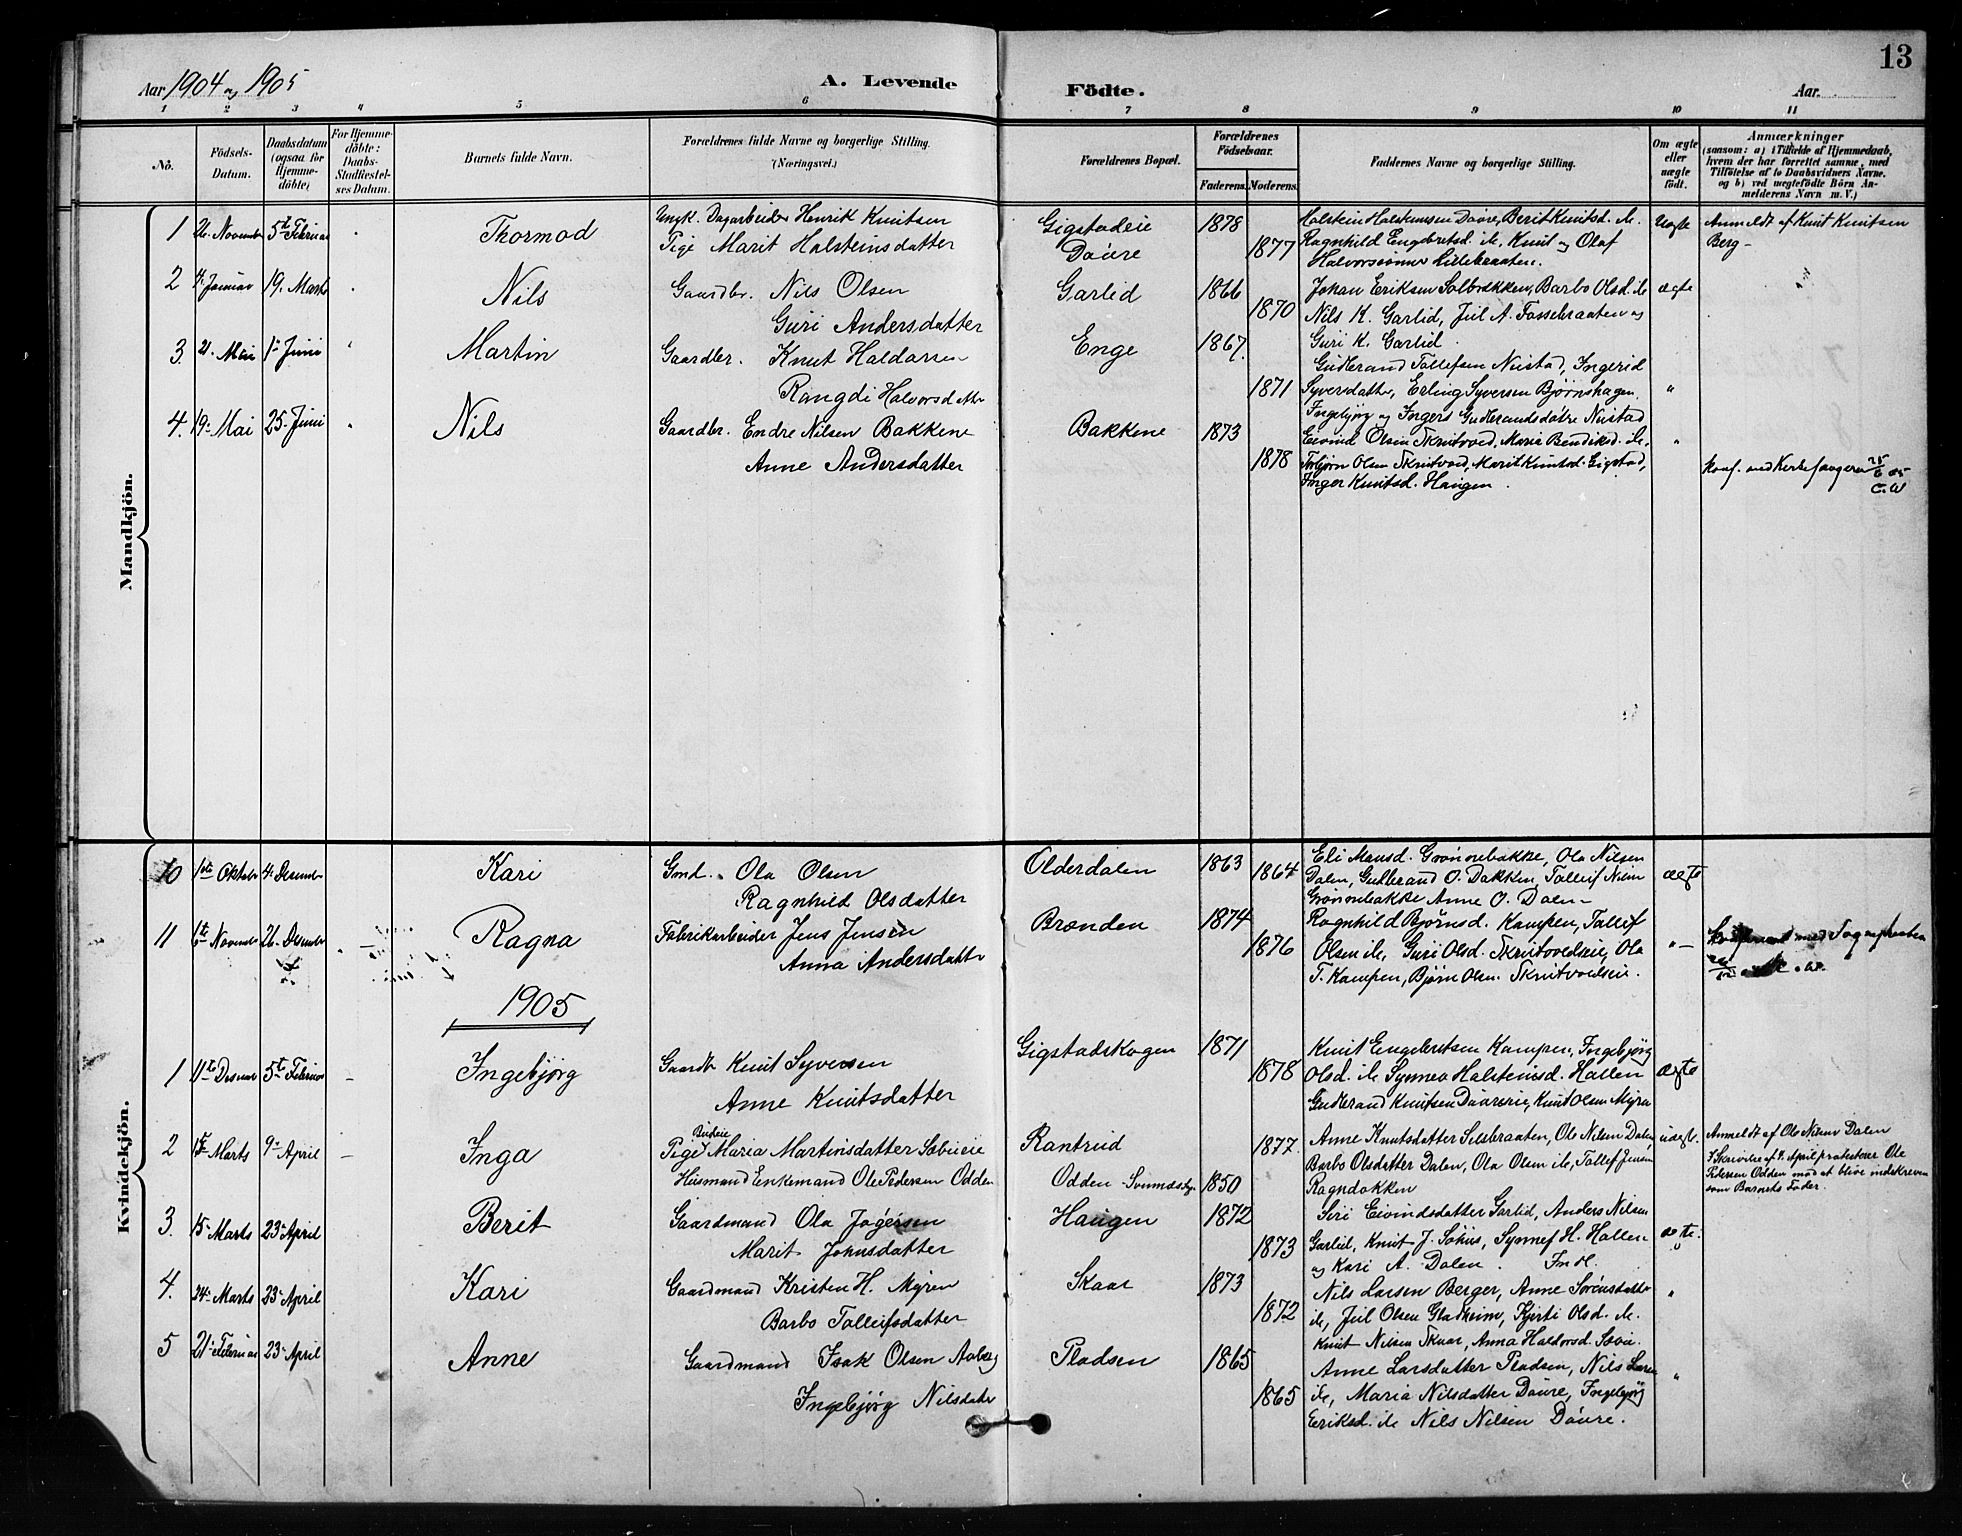 13
Aar 1904 og 1905 A. Levende Födte. Aar.
1 2 3 4 5 6 7 8 9 10 11
No.
Födsels-Datum.
Daabsdatum (ogsaa for Hjemmedöbte)
For Hjemmedöbte: Daabs-Stadfæstelses Datum.
Barnets fulde Navn.
Forældrenes fulde Navne og borgerlige Stilling. (Næringsvei.)
Forældrenes Bopæl.
Forældrenes Födselsaar.
Faderens. Moderens.
Faddernes Navne og borgerlige Stilling.
Om ægte eller uægte födt.
Anmærkninger (saasom: a) i Tilfælde af Hjemmedaab, hvem der har forrettet samme, med Tilföielse af to Daabsvidners Navne. og b) ved uægtefödte Börn Anmelderens Navn m. V.)
Mandkjön.
1 26. November 5te Februar Thormod Ungk. Dagarbeider Henrik Knutsen Gigstadeie 1878 Halstein Halsteinsen Døvre, Berit Knutsd. ib. Uægte Anmeldt af Knut Knutsen
Pige Marit Halsteinsdatter Døvre 1877 Ragnhild Engebretsd. ib, Knut og Olaf Berg -
Halvorssønner Lillebraaten.
2 Januar 19. Marts Nils Gaardbr. Nils Olsen Garlid 1866 Johan Eriksen Solbrækken, Barbo Olsd. ib ægte "
Guri Andersdatter 1870 Nils K. Garlid, Jul A. Fossebraaten og
3 21. Mai 1ste Juni Martin Gaardbr. Knut Haldorsen Enge 1867. Guri K. Garlid.
Gudbrand Tollefsen Nustad, Ingerid
Rangdi Halvorsdatter 1871 Syversdatter, Erling Syversen Bjørnshagen, "
Ingebjørg og Ingers Gudbrandsdøtre Nustad
4. 19. Mai 25. Juni Nils Gaardbr. Endre Nilsen Bakkene Bakkene 1873 Eivind Olsen Skrutvold, Maria Bendiksd. ib. "
Anne Andersdatter 1878 Torbjørn Olsen Skrutvold, Marit Knutsd. Gigstad, Konf. med Kirkesangeren 25/6 05
Inger Knutsd. Haugen. C.W
Kvindekjön.
10 1ste Oktober 4. Desember Kari Gmd. Ola Olsen Olderdalen 1863 1864 Eli Monsd. Grønnebakke, Ola Nilsen
Ragnhild Olsdatter Dalen, Gudbrand O. Dokken, Tolleif Nilsen ægte
Grønnebakke Anne O. Dalen -
11 6te November 26. Desember Ragna Fabrikarbeider Jens Jensen Brænden 1874 Ragnhild Bjørnsd. Kampen, Tollef Konfereret med Sognepresten
Anna Andersdatter 1876 Olsen ib, Guri Olsd. Skrutvoldeie, Ola " -
T. Kampen, Bjørn Olsen Skrutvoldeie.
1905
1 11te Desember 5te Februar - Ingebjørg Gaardb. Knut Syversen Gigstadskogen 1871 Knut Engebretsen Kampen, Ingebjørg
Anne Knutsdatter 1878 Olsd. ib Synnea Halsteinsd. Hallen ægte
Gudbrand Knutsen Døvreeie, Knut Olsen Myra
2 Marts 9. April - Inga Budeie
Pige Maria Martinsdatter Sæbueie Rantrud 1877. Anne Knutsdatter Selsbraaten, Ole Nilsen Dalen uægt. Anmeldt af Ole Nilsen Dalen
Husmand Enkemand Ole Pedersen Odden Odden - 1850 Barbo Olsdatter Dalen, Ola Olsen ib, Tollef Jensen I Skrivelse af 4. April protesterer Ole
Ragndokken Pedersen Odden mod at blive indskreven
som Barnets Fader.
3. 15 Marts 23 April Berit Gaardmand Ola Jøgersen Haugen 1872 Siri Eivindsdatter Garlid, Anders Nilsen
Marit Johnsdatter 1873 Garlid, Knut J. Søhus, Synnef H. Hallen ægte.
og Kari A. Dalen.
4. 24. Marts 23. April Kari Gaardmand Kristen H. Myren Skaar 1873 Nils Larsen Berger, Anne Sørensdatter "
Barbo Tolleifsdatter 1872 ib, Jul Olsen Gladheim, Kjersti Olsd. ib.
Knut Nilsen Skaar, Anna Haldorsd.
5 21. Februar 23. April Anne Gaardmand Isak Olsen Aaberg Pladsen 1865 Anne Larsdatter Pladsen, Nils Larsen "
Ingebjørg Nilsdatter 1865 ib, Maria Nilsdatter Døvre, Ingebjørg
Eriksd. ib Nils Nilsen Døvre.